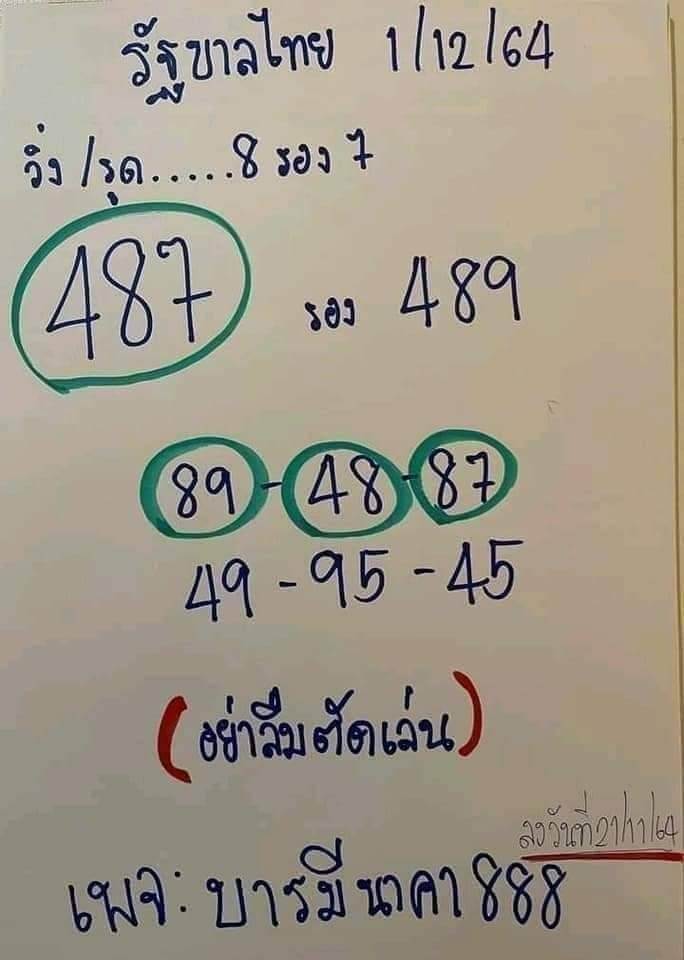 รัฐบาลไทย 1/12/64
วิ่ง/รูด.....8 รอง 7
487 รอง 489
89-48-87
49-95-45
(อย่าลืมตัดเล่น)
ลงวันที่21/11/64
เพจ: บารมีนาคา888